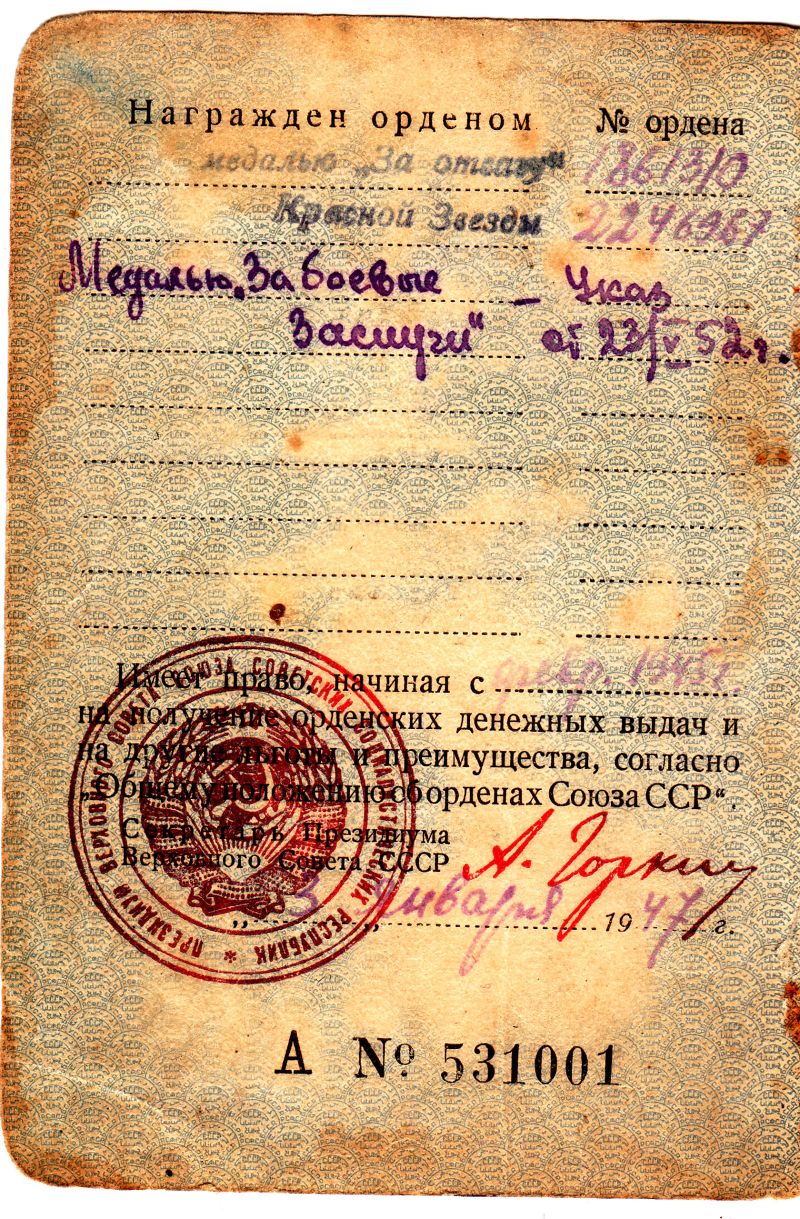 Награжден орденом № ордена
медалью „За отвагу" 1861310
Красной Звезды 2246967
Медалью „За боевые – Указ
Заслуги" от 23/V 52 г.
Имеет право, начиная с февр. 1945 г.
на получение орденских денежных выдач и
на другие льготы и преимущества, согласно
„Общему положению об орденах Союза ССР".
Секретарь Президиума
Верховного Совета СССР А. Горкин
„3" Января 1947 г.
А № 531001
ПРЕЗИДИУМ ВЕРХОВНОГО СОВЕТА СОЮЗА СОВЕТСКИХ СОЦИАЛИСТИЧЕСКИХ РЕСПУБЛИК *